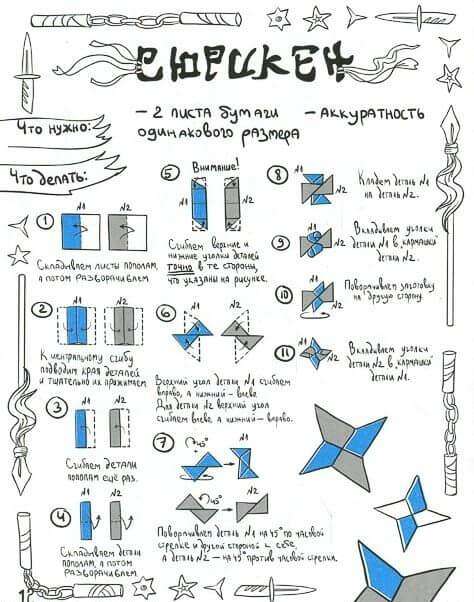 СЮРИКЕН
Что нужно:
– 2 листа бумаги
одинакового размера
– Аккуратность
Что делать:
1
№1 №2
Складываем листы пополам,
а потом разворачиваем
2
№1 №2
К центральному сгибу
подводим края деталей
и тщательно их прижимаем
3
№1 №2
Сгибаем детали
пополам ещё раз.
4
№1 №2
Складываем детали
пополам, а потом
разворачиваем
5
Внимание!
№1 №2
Сгибаем верхние и
нижние уголки деталей
точно в те стороны,
что указаны на рисунке.
6
№1 №2
Верхний угол детали №1 сгибаем
вправо, а нижний – влево.
Для детали №2 верхний угол
сгибаем влево, а нижний – вправо.
7
45° №1
45° №2
Поворачиваем деталь №1 на 45° по часовой
стрелке и другой стороной к себе,
а деталь №2 – на 45° против часовой стрелки.
8
№1
№2
Кладем деталь №1
на деталь №2.
9
№1
№2
Вкладываем уголки
детали №1 в кармашки
детали №2.
10
№1
№2
Поворачиваем заготовку
на другую сторону
11
№1
№2
Вкладываем уголки
детали №2 в кармашки
детали №1.